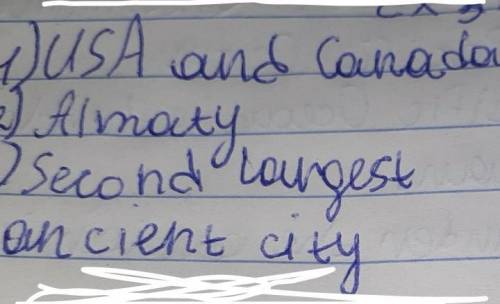 1) USA and Canada
2) Almaty
) Second largest
ancient city